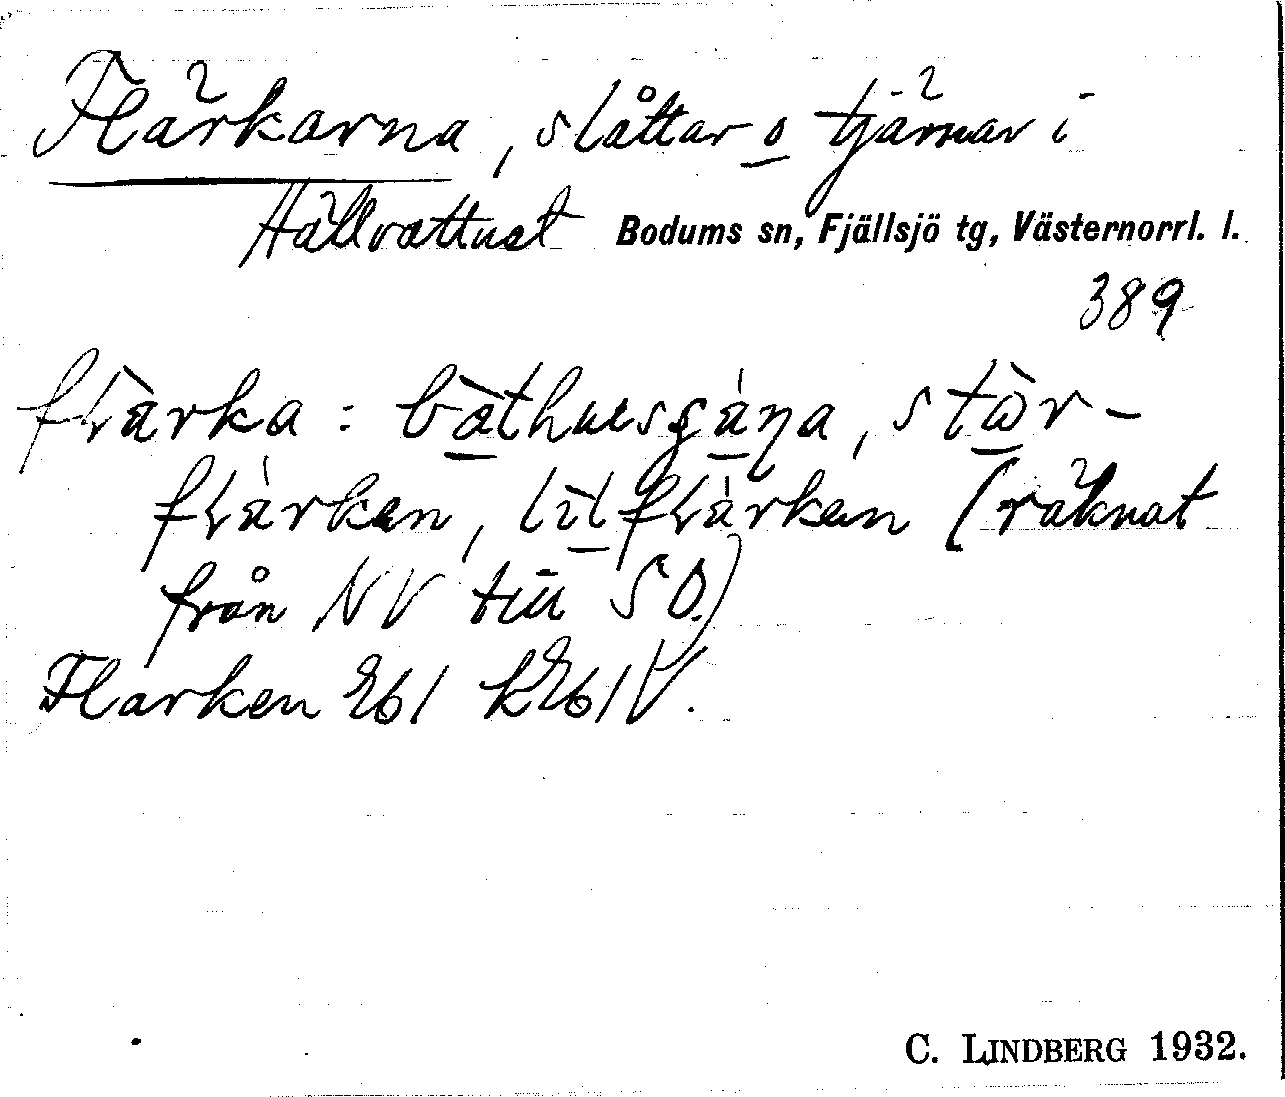 Flärkarna, slåttar o tjärnar i
Hällvattnet Bodums sn, Fjällsjö tg, Västernorrl. l.
389
flàrka: bàthusgàŋa, stòr-
flàrkan, lìlflàrkan (räknat
från NV till SO.)
Flarken Eb1 kEb1V.
C. LINDBERG 1932.